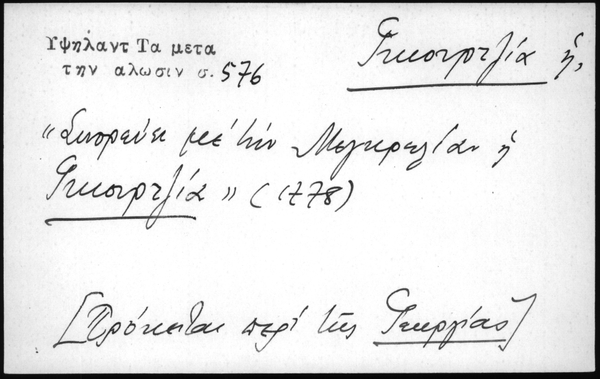 Υψηλαντ Τα μετα
την αλωσιν σ. 576
Γκιουρτζία ἡ,
"Συνορεύει μέ τήν Μεγκρελίαν ἡ
Γκιουρτζία" (1778)
[Πρόκειται περί τῆς Γεωργίας]